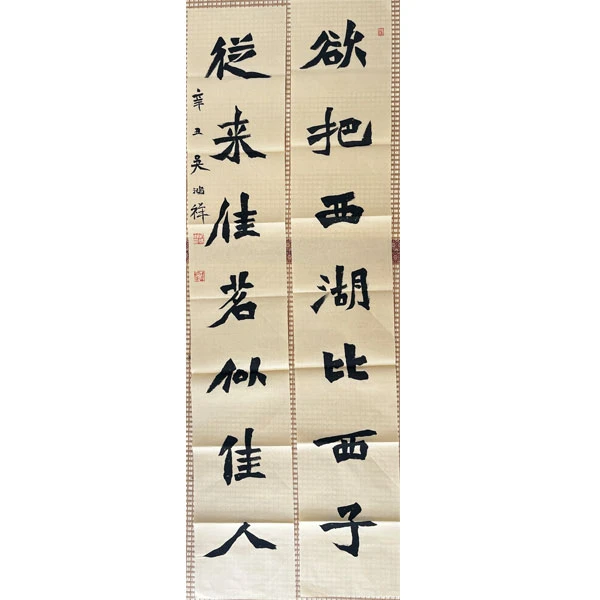 欲把西湖比西子
從来佳茗似佳人
辛丑吴鸿祥